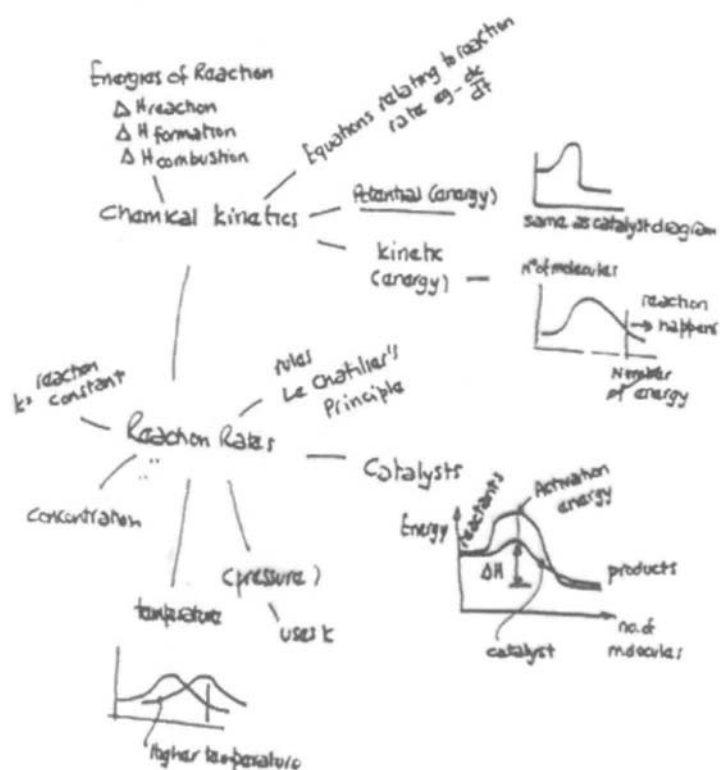 Energies of Reaction
Δ H reaction
Δ H formation
Δ H combustion
Equations relating to reaction
rate eg - dc/dt
Chemical kinetics
Potential (energy)
same as catalyst diagram
kinetic
(energy)
Nº of molecules
reaction
happens
Number
of energy
reaction
k= constant
rules
Le Chatilier's
Principle
Reaction Rates
Catalysts
concentration
temperature
(pressure)
uses k
higher temperature
Energy
reactants
Activation
energy
ΔH
products
catalyst
no. of
molecules